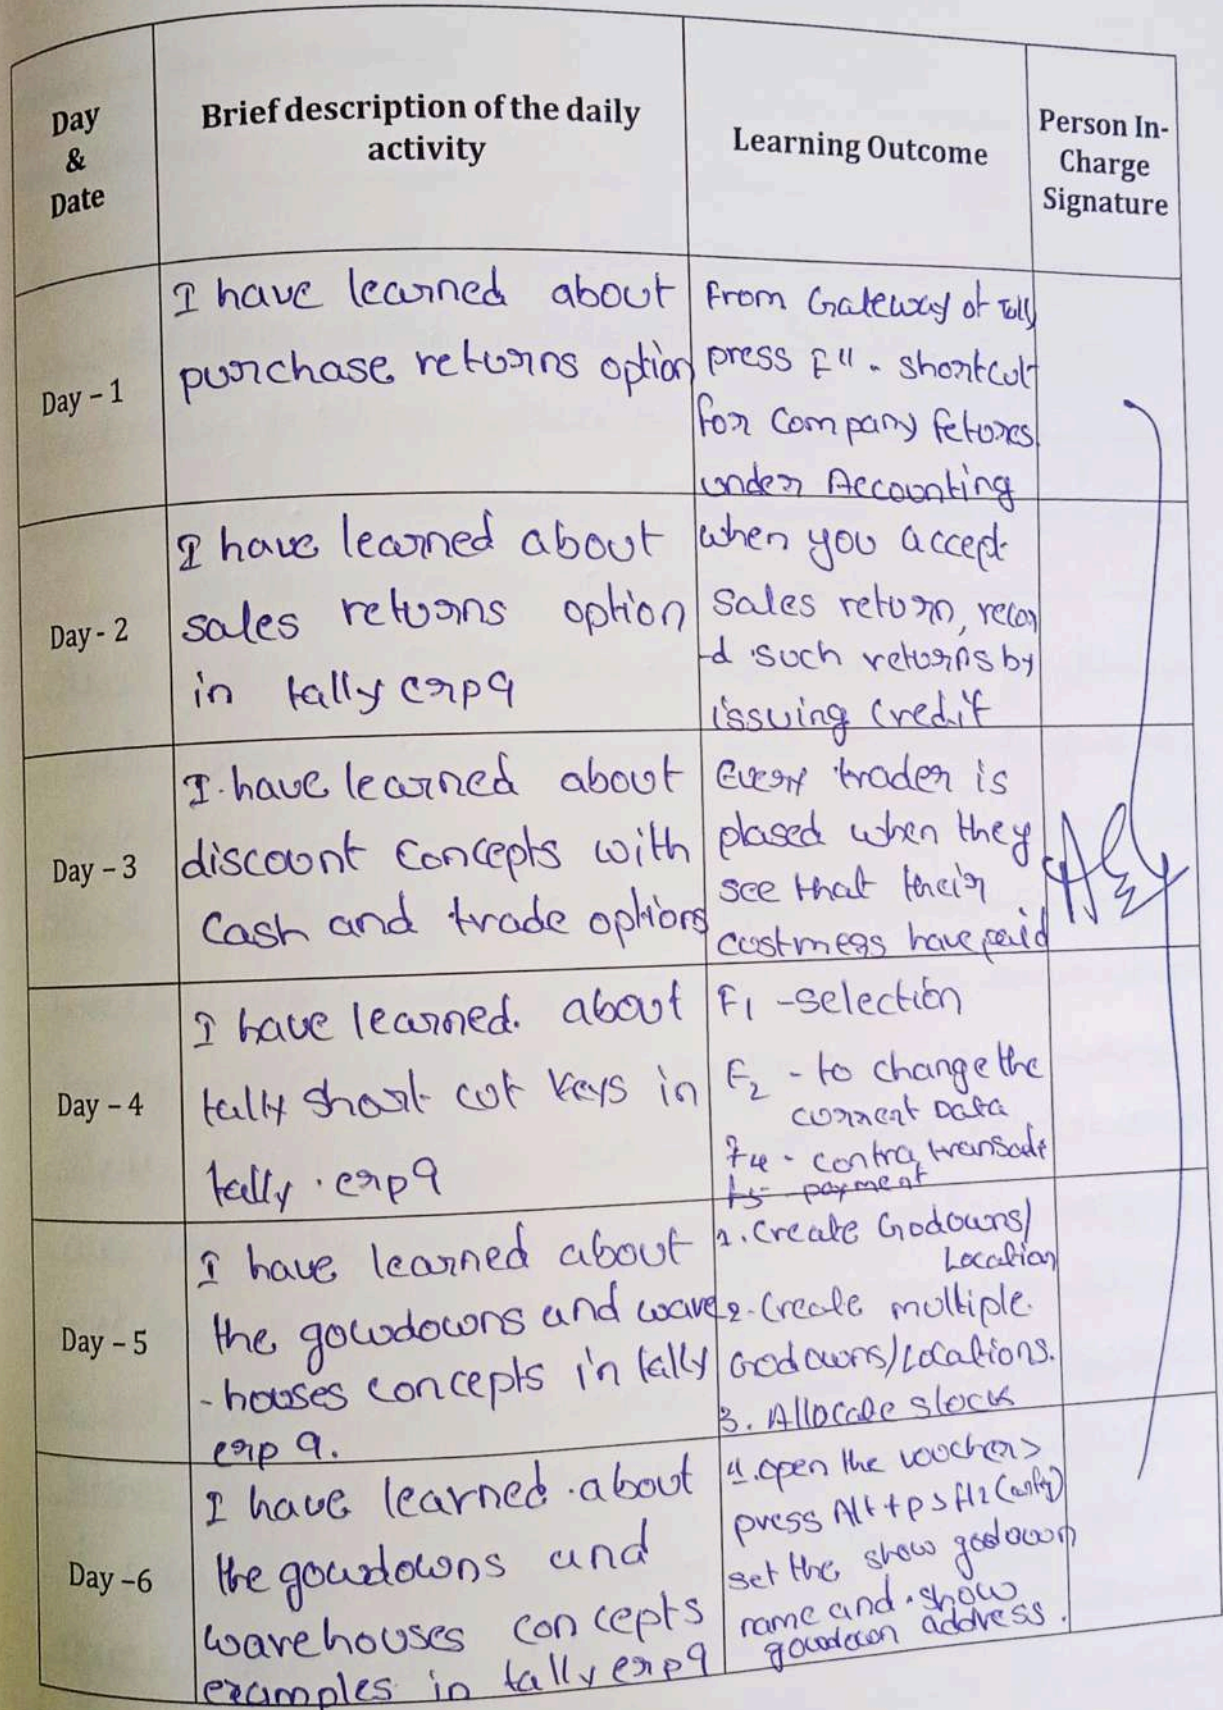 Day
&
Date
Brief description of the daily
activity
Learning Outcome
Person In-
Charge
Signature
Day – 1
I have learned about
purchase returns option
From Gateway of Tally
press F11 - shortcut
for Company fetures
under Accounting
Day - 2
I have learned about
sales returns option
in tally erp9
when you accept
Sales return, recor
-d such returns by
issuing Credit
Day – 3
I have learned about
discount concepts with
Cash and trade options
Every trader is
plased when they
see that their
custmers have paid
Day – 4
I have learned. about
tally short cut keys in
tally . erp9
F1 - selection
F2 - to change the
current Data
F4 - contra transacti
F5 - payment
Day – 5
I have learned about
the gowdowns and ware
- houses concepts in tally
erp 9.
1. Create Godowns/
Location
2. Create multiple
Godowns/Locations.
3. Allocate stock
Day –6
I have learned . about
the gowdowns and
warehouses concepts
examples in tally erp9
4. open the vouchers >
press Alt+p > f12
set the show godown
name and . show
gowdown address .